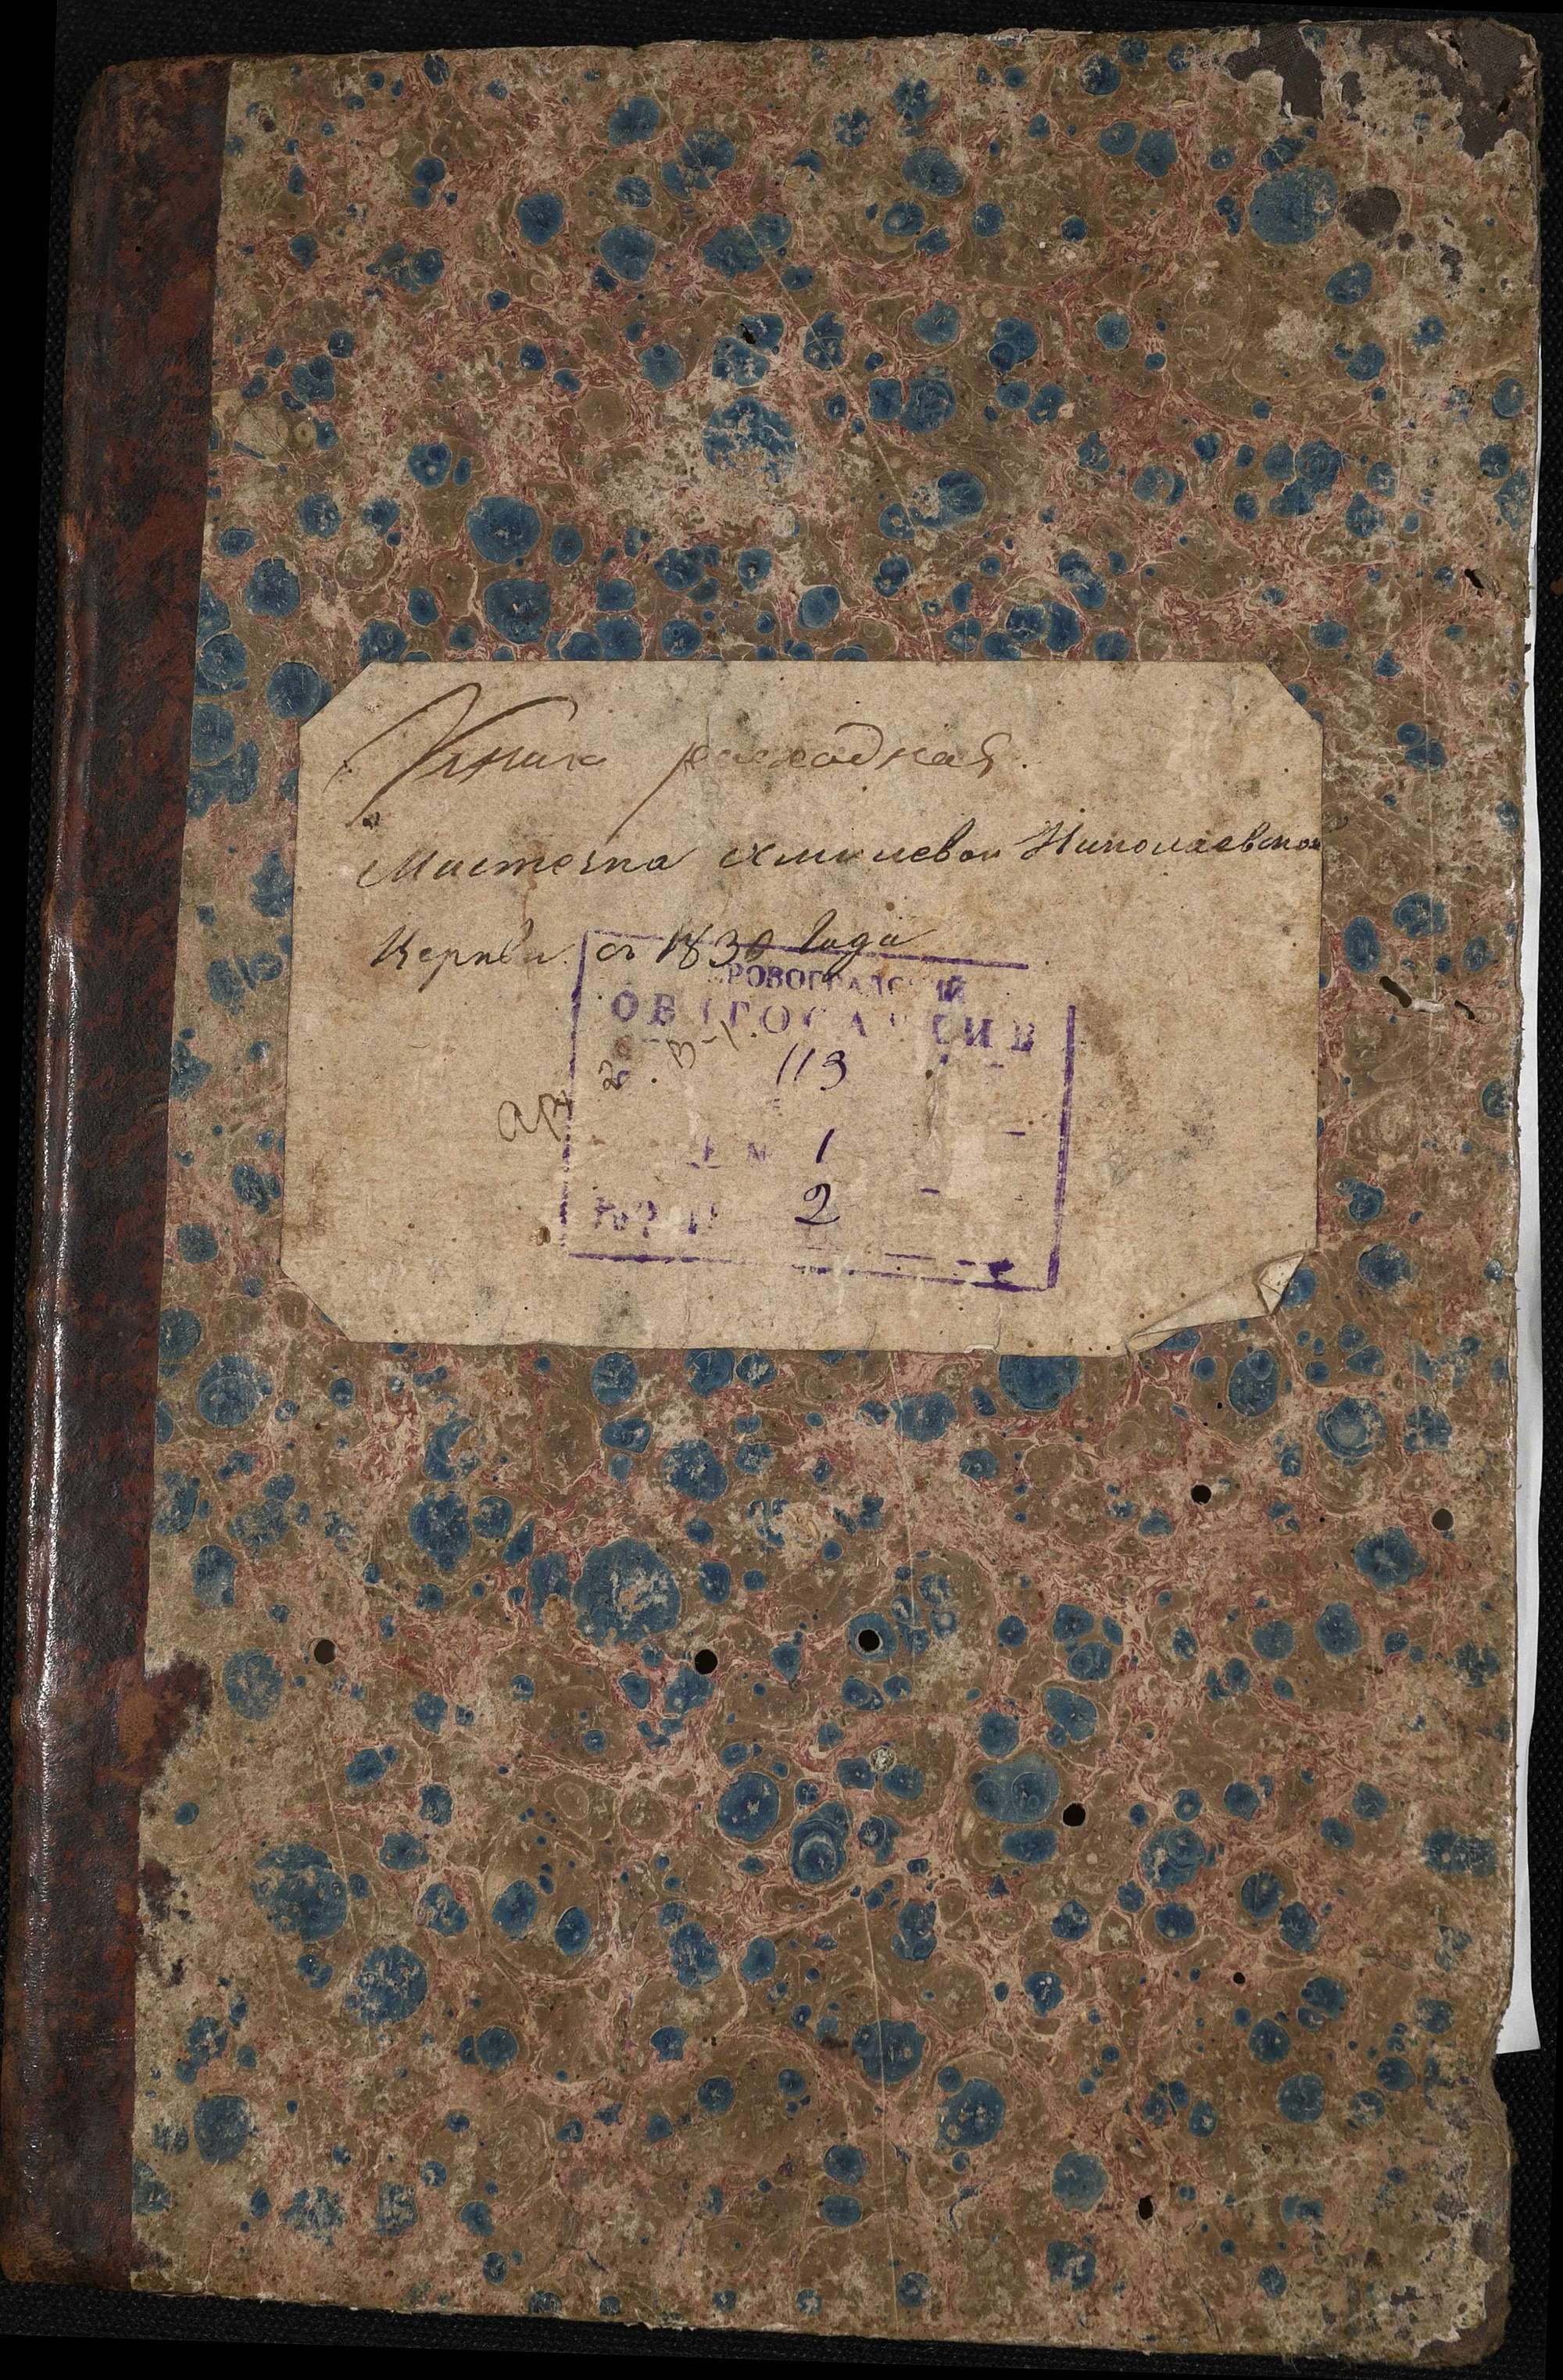 Книга расходная.
Мистечка Хмилевои Николаевской
Церкви съ 1830 Года
РОВОГРАДСКИЙ
ОБЛГОСАРХИВ
113
1
2